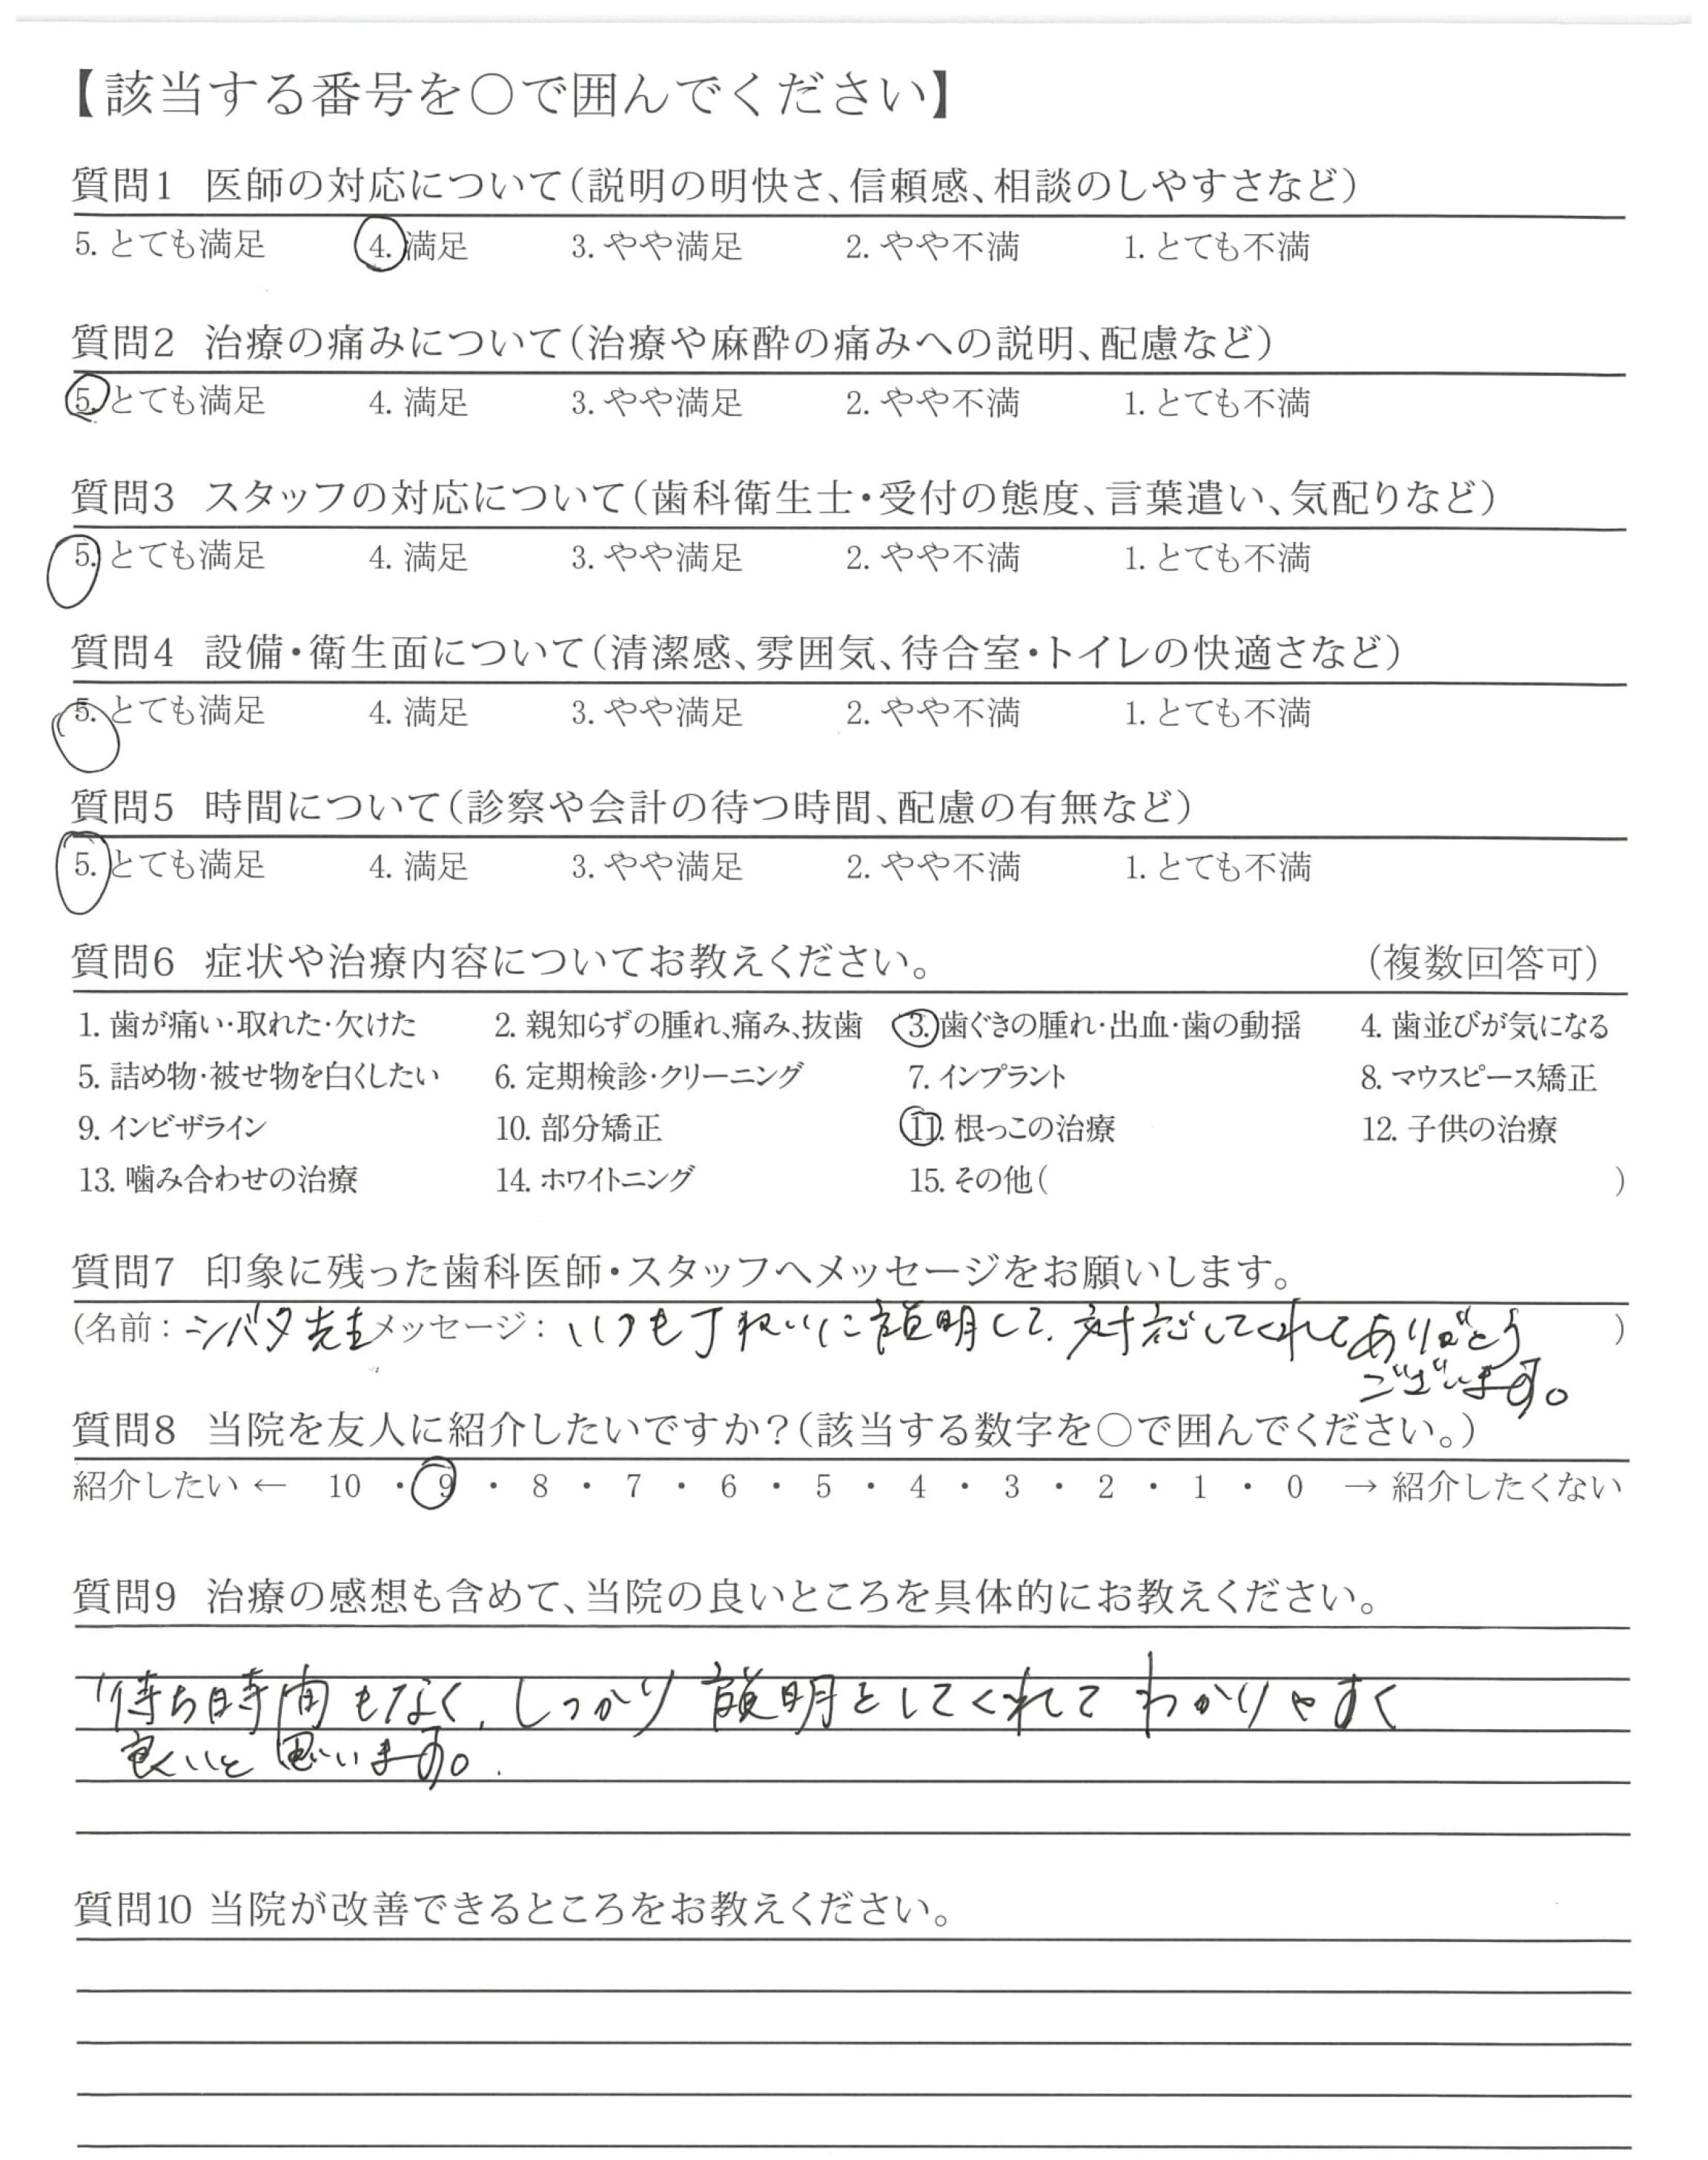 【該当する番号を○で囲んでください】
質問1 医師の対応について(説明の明快さ、信頼感、相談のしやすさなど)
5. とても満足 4. 満足 3. やや満足 2. やや不満 1. とても不満
質問2 治療の痛みについて(治療や麻酔の痛みへの説明、配慮など)
5. とても満足 4. 満足 3. やや満足 2. やや不満 1. とても不満
質問3 スタッフの対応について(歯科衛生士・受付の態度、言葉遣い、気配りなど)
5. とても満足 4. 満足 3. やや満足 2. やや不満 1. とても不満
質問4 設備・衛生面について(清潔感、雰囲気、待合室・トイレの快適さなど)
5. とても満足 4. 満足 3. やや満足 2. やや不満 1. とても不満
質問5 時間について(診察や会計の待つ時間、配慮の有無など)
5. とても満足 4. 満足 3. やや満足 2. やや不満 1. とても不満
質問6 症状や治療内容についてお教えください。 (複数回答可)
1. 歯が痛い・取れた・欠けた 2. 親知らずの腫れ、痛み、抜歯 3. 歯ぐきの腫れ・出血・歯の動揺 4. 歯並びが気になる
5. 詰め物・被せ物を白くしたい 6. 定期検診・クリーニング 7. インプラント 8. マウスピース矯正
9. インビザライン 10. 部分矯正 11. 根っこの治療 12. 子供の治療
13. 噛み合わせの治療 14. ホワイトニング 15. その他( )
質問7 印象に残った歯科医師・スタッフへメッセージをお願いします。
(名前：シバタ先生 メッセージ：いつも丁ねいに説明して、対応してくれてありがとう )
ございます。
質問8 当院を友人に紹介したいですか？(該当する数字を○で囲んでください。)
紹介したい ← 10 ・ 9 ・ 8 ・ 7 ・ 6 ・ 5 ・ 4 ・ 3 ・ 2 ・ 1 ・ 0 → 紹介したくない
質問9 治療の感想も含めて、当院の良いところを具体的にお教えください。
待ち時間もなく、しっかり説明をしてくれてわかりやすく
良いと思います。
質問10 当院が改善できるところをお教えください。